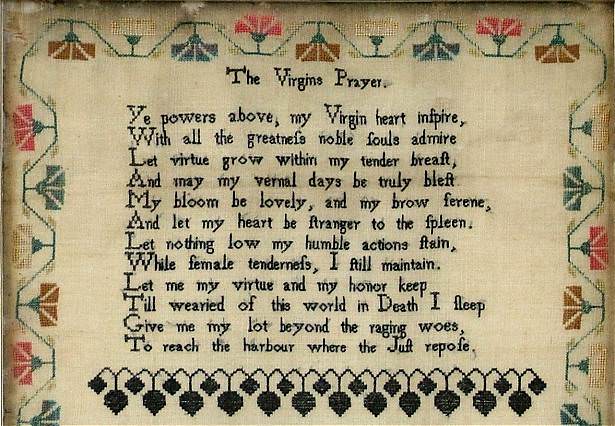 The Virgins Prayer.
Ye powers above, my Virgin heart inſpire,
With all the greatneſs noble ſouls admire
Let virtue grow within my tender breaſt,
And may my vernal days be truly bleſt
My bloom be lovely, and my brow ſerene,
And let my heart be ſtranger to the ſpleen.
Let nothing low my humble actions ſtain,
While female tenderneſs, I ſtill maintain.
Let me my virtue and my honor keep
Till wearied of this world in Death I ſleep
Give me my lot beyond the raging woes,
To reach the harbour where the Juſt repoſe.